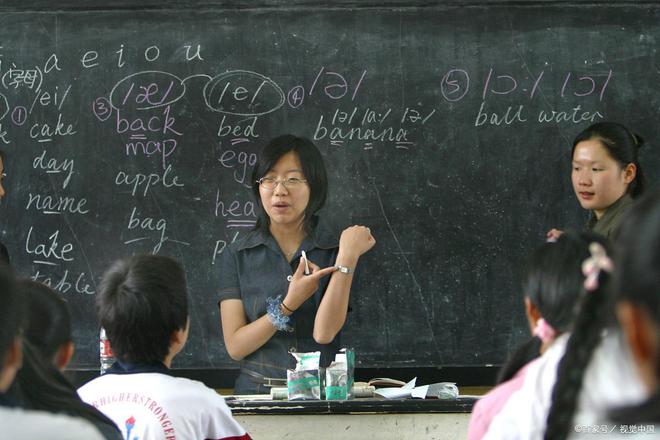 a e i o u
(字母)
① /ei/
cake
day
name
lake
table
③ /æ/
back
map
apple
bag
/e/
bed
egg
④ /ə/
/ə/ /a:/ /ə/
banana
⑤ /ɔ:/ /ɔ/
ball water
HIGHER STRONGER
©视觉中国